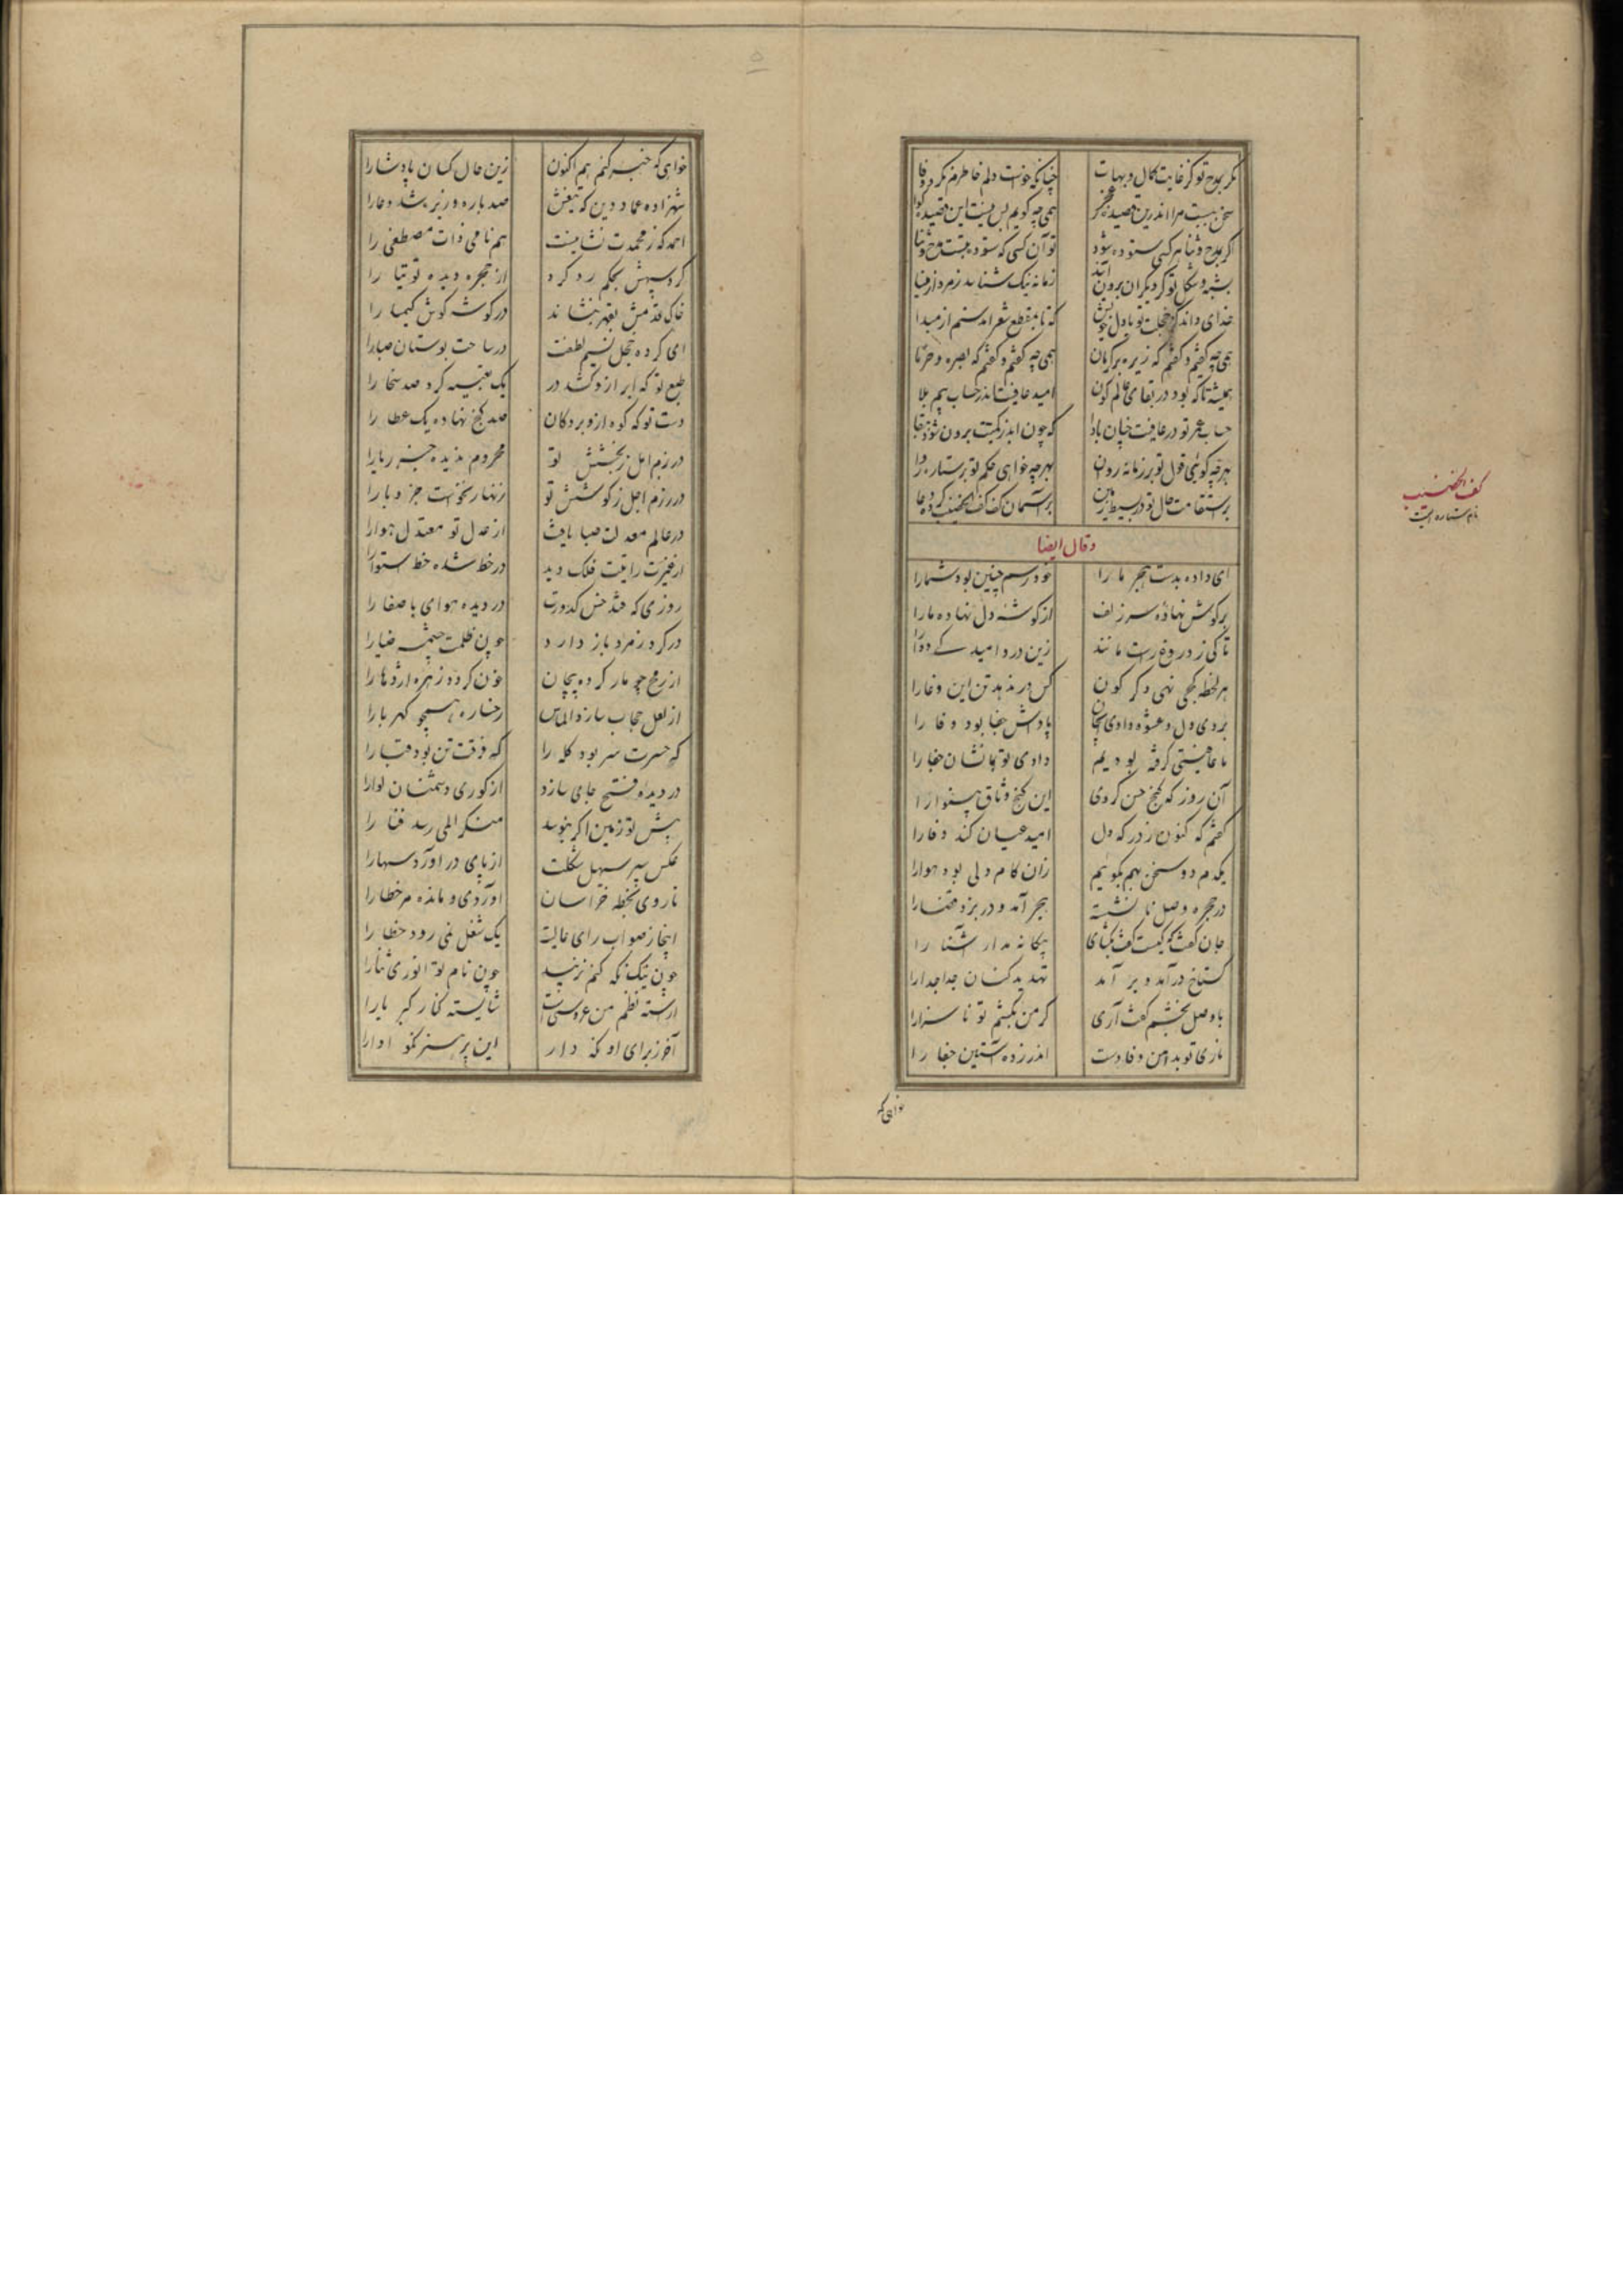 مکر بمدح تو کز غایت کمال و بهات چنانکه خواست دلم خاطرم نکرد وفا
سخن بسیست مرا اندرین قصیده همی چه گویم بس نیست این قصیده گوا
اگر بمدح و ثنا هر کسی ستوده شود تو آن کسی که ستوده بتست مدح و ثنا
بشبه و شکل تو گر دیگران برون آیند زمانه نیک شناسد زمرد از مینا
خدای داند کز خجلت تو با دل خویش که تا بمقطع شعر آمدستم از مبدا
همی چه گفتم گفتم که زیره و کرمان همی چه گفتم گفتم که بصره و خرما
همیشه تا که بود در بقای عالم کون امید عافیت اندر حساب بیم بلا
حساب عمر تو در عافیت چنان بادا که چون ابد ز کمیت برون شود بقا
بهرچه گوئی قول تو بر زمانه روان بهرچه خواهی حکم تو بر ستاره روا
بر استقامت حال تو در بسیط زمین بر آسمان کف کف الخضیب کرده دعا
کف الخضیب
نام ستاره ایست
و قال ایضا
ای داده بدست هجر ما را خود رسم چنین بود شما را
بر گوش نهاده سر زلف از گوشه دل نهاده ما را
تا کی ز دروغ راست مانند زین درد امید کی دوا را
هر لحظه کجی نهی دگر گون کس در ندهد تن این دغا را
بردی دل و عشوه دادی ای جان پاداش جفا بود وفا را
ما عافیتی گرفته بودیم دادی تو بما نشان جفا را
آن روز که گنج حسن کردی این کنج وثاق بینوا را
گفتم که کنون ز درگه دل امید عیان کند وفا را
یکدم دو سخن بهم بگوئیم زان کام دلی بود هوا را
در حجره وصل نانشسته هجر آمد و در بزد قضا را
جان گفت که کیست گفت بگشای بیگانه مدار آشنا را
گستاخ درآمد و برآمد تهدید کنان جداجدا را
با وصل بخشم گفت آری گر من نکشم تو ناسزا را
باری تو بدامن وفا دست اندر زده آستین جفا را
خواهی که
خواهی که خبر کنم هم اکنون زین حال کسان پادشا را
شهزاده عماد دین که تیغش صد باره وزیر شد وغا را
احمد که ز محمدت نشانیست هم نامی ذات مصطفی را
گردسپهش بحکم رد کرد از حجره دیده توتیا را
خاک قدمش بقهر بنشاند در گوشه گوش کیمیا را
ای کرده خجل نسیم لطفت در ساحت بوستان صبا را
طبع تو که ابر ازو کشد در یک تعبیه کرد صد سخا را
دست تو که کوه ازو برد کان صد گنج نهاده یک عطا را
در بزم امل ز بخشش تو محروم ندیده جز ریا را
در رزم اجل ز کوشش تو زنهار نخواست جز وبا را
در عالم معدلت صبا یافت از عدل تو معتدل هوا را
از غیرت رایتت فلک دید در خط شده خط استوا را
روزی که فتد خس کدورت در دیده هوای با صفا را
در گرد زمرد باز دارد چون ظلمت چشمه ضیا را
از رمح چو مار کرده پیچان خون کرده ز زهره اژدها را
از لعل حجاب سازد الماس رخساره همچو کهربا را
که حسرت سر بود کله را که فرقت تن بود قبا را
در دیده فتح جای سازد از کوری دشمنان لوا را
پیش تو زمین اگر نبوسد منکر المی رسد فنا را
عکس سپر سهیل شکلت از پای درآورد سها را
تا روی بخطه خراسان آوردی و مانده مر خطا را
اینجا ز صواب رای عالیت یک شغل نمی رود خطا را
چون نیک نگه کنم نزیبد چون نام تو انوری ثنا را
از رشته نظم من عروسیست شایسته کنار کبریا را
آخر ز برای او نگه دار این پر هنر نکو ادا را